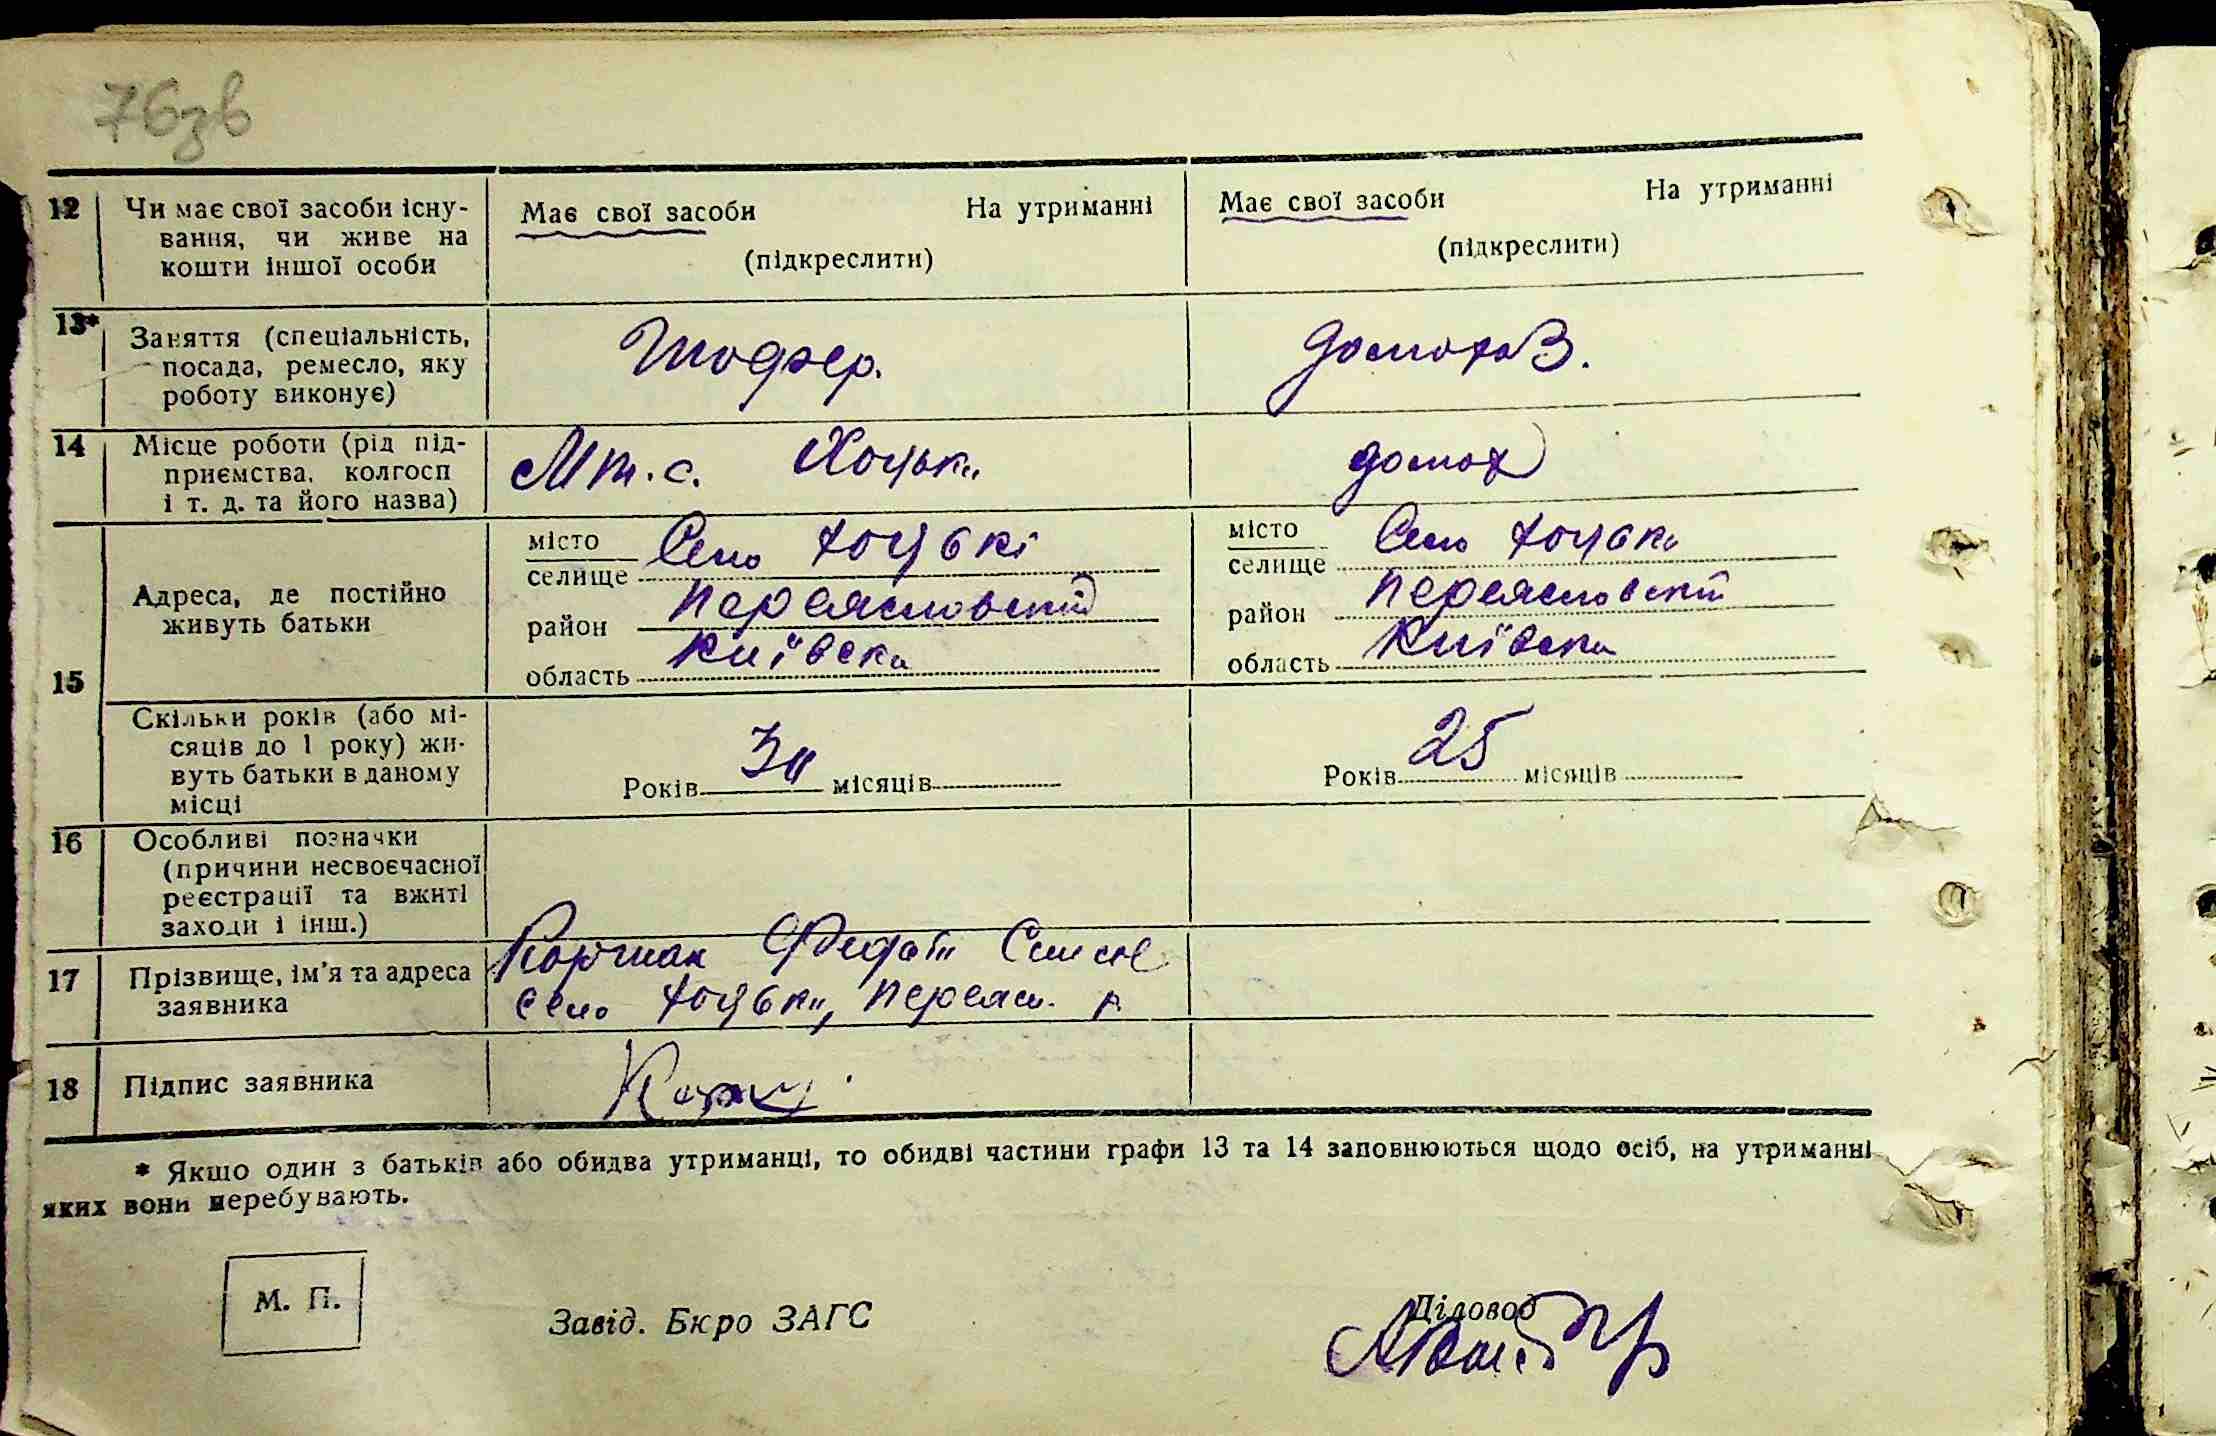 76зв
12 Чи має свої засоби існу- Має свої засоби На утриманні Має свої засоби На утриманні
вання, чи живе на (підкреслити) (підкреслити)
кошти іншої особи
13* Заняття (спеціальність, Шофер. домохоз.
посада, ремесло, яку
роботу виконує)
14 Місце роботи (рід під- М.т.с. Хоцьки домох
приємства, колгосп
і т. д. та його назва)
15 Адреса, де постійно живуть батьки
місто селище Село Хоцькі місто селище Село Хоцьки
район Переясловский район Переясловский
область Київска область Київска
Скільки років (або мі- Років 30 місяців Років 25 місяців
сяців до 1 року) жи-
вуть батьки в даному
місці
16 Особливі позначки
(причини несвоєчасної
реєстрації та вжиті
заходи і інш.)
17 Прізвище, ім'я та адреса Коржак Федот
заявника село Хоцьки, Переясл. р.
18 Підпис заявника
* Якщо один з батьків або обидва утриманці, то обидві частини графи 13 та 14 заповнюються щодо осіб, на утриманні
яких вони перебувають.
М. П.
Завід. Бюро ЗАГС Діловод